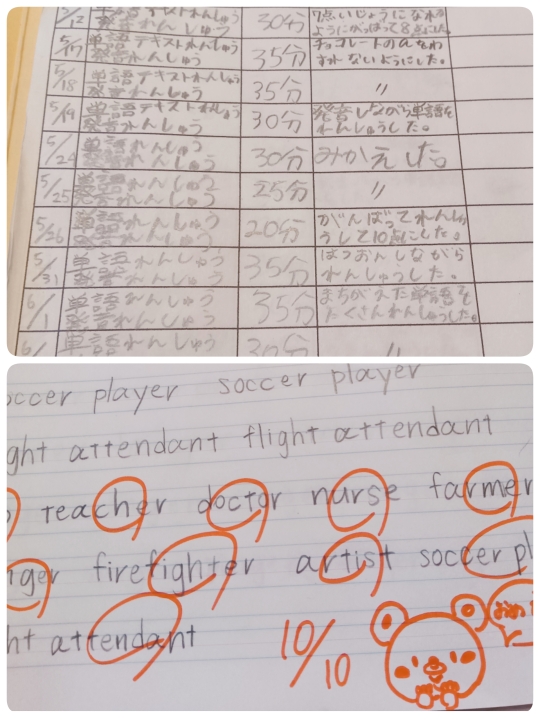 5/12 単語れんしゅう 30分 7点いじょうになれる
発音れんしゅう ようにがんばって8点に
5/17 単語テキストれんしゅう 35分 チョコレートのaをわ
発音れんしゅう すれないようにした。
5/18 単語テキストれんしゅう 35分 〃
発音れんしゅう
5/19 単語テキストれんしゅう 30分 発音しながら単語を
発音れんしゅう れんしゅうした。
5/24 単語れんしゅう 30分 みかえした。
発音れんしゅう
5/25 単語れんしゅう 25分 〃
発音れんしゅう
5/26 単語れんしゅう 20分 がんばってれんしゅ
発音れんしゅう うして10点にした。
5/31 単語れんしゅう 35分 はつおんしながら
発音れんしゅう れんしゅうした。
6/1 単語れんしゅう 35分 まちがえた単語を
発音れんしゅう たくさんれんしゅうした。
6/ 単語れんしゅう 30分 〃
occer player soccer player
ght attendant flight attendant
teacher doctor nurse farmer
nger firefighter artist soccer pl
ht attendant
10/10